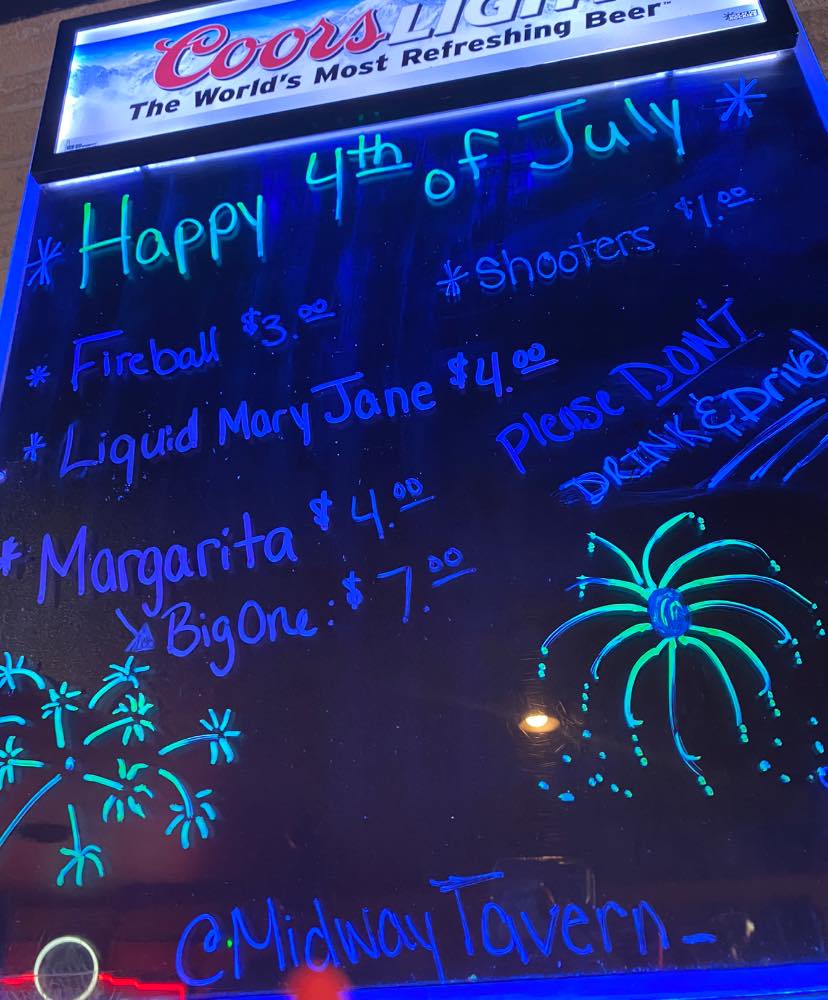 Coors LIGHT
The World's Most Refreshing Beer™
* Happy 4th of July *
* Shooters $1.00
* Fireball $3.00
* Liquid Mary Jane $4.00
Please DON'T
DRINK & Drive!
* Margarita $4.00
Big One: $7.00
@MidwayTavern_